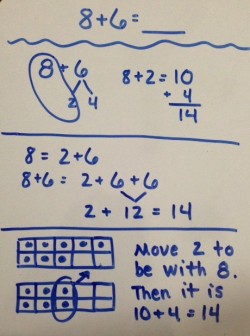 8+6=___
8+6
2 4
8+2=10
+ 4
14
8 = 2+6
8+6 = 2+6+6
2 + 12 = 14
Move 2 to
be with 8.
Then it is
10+4=14